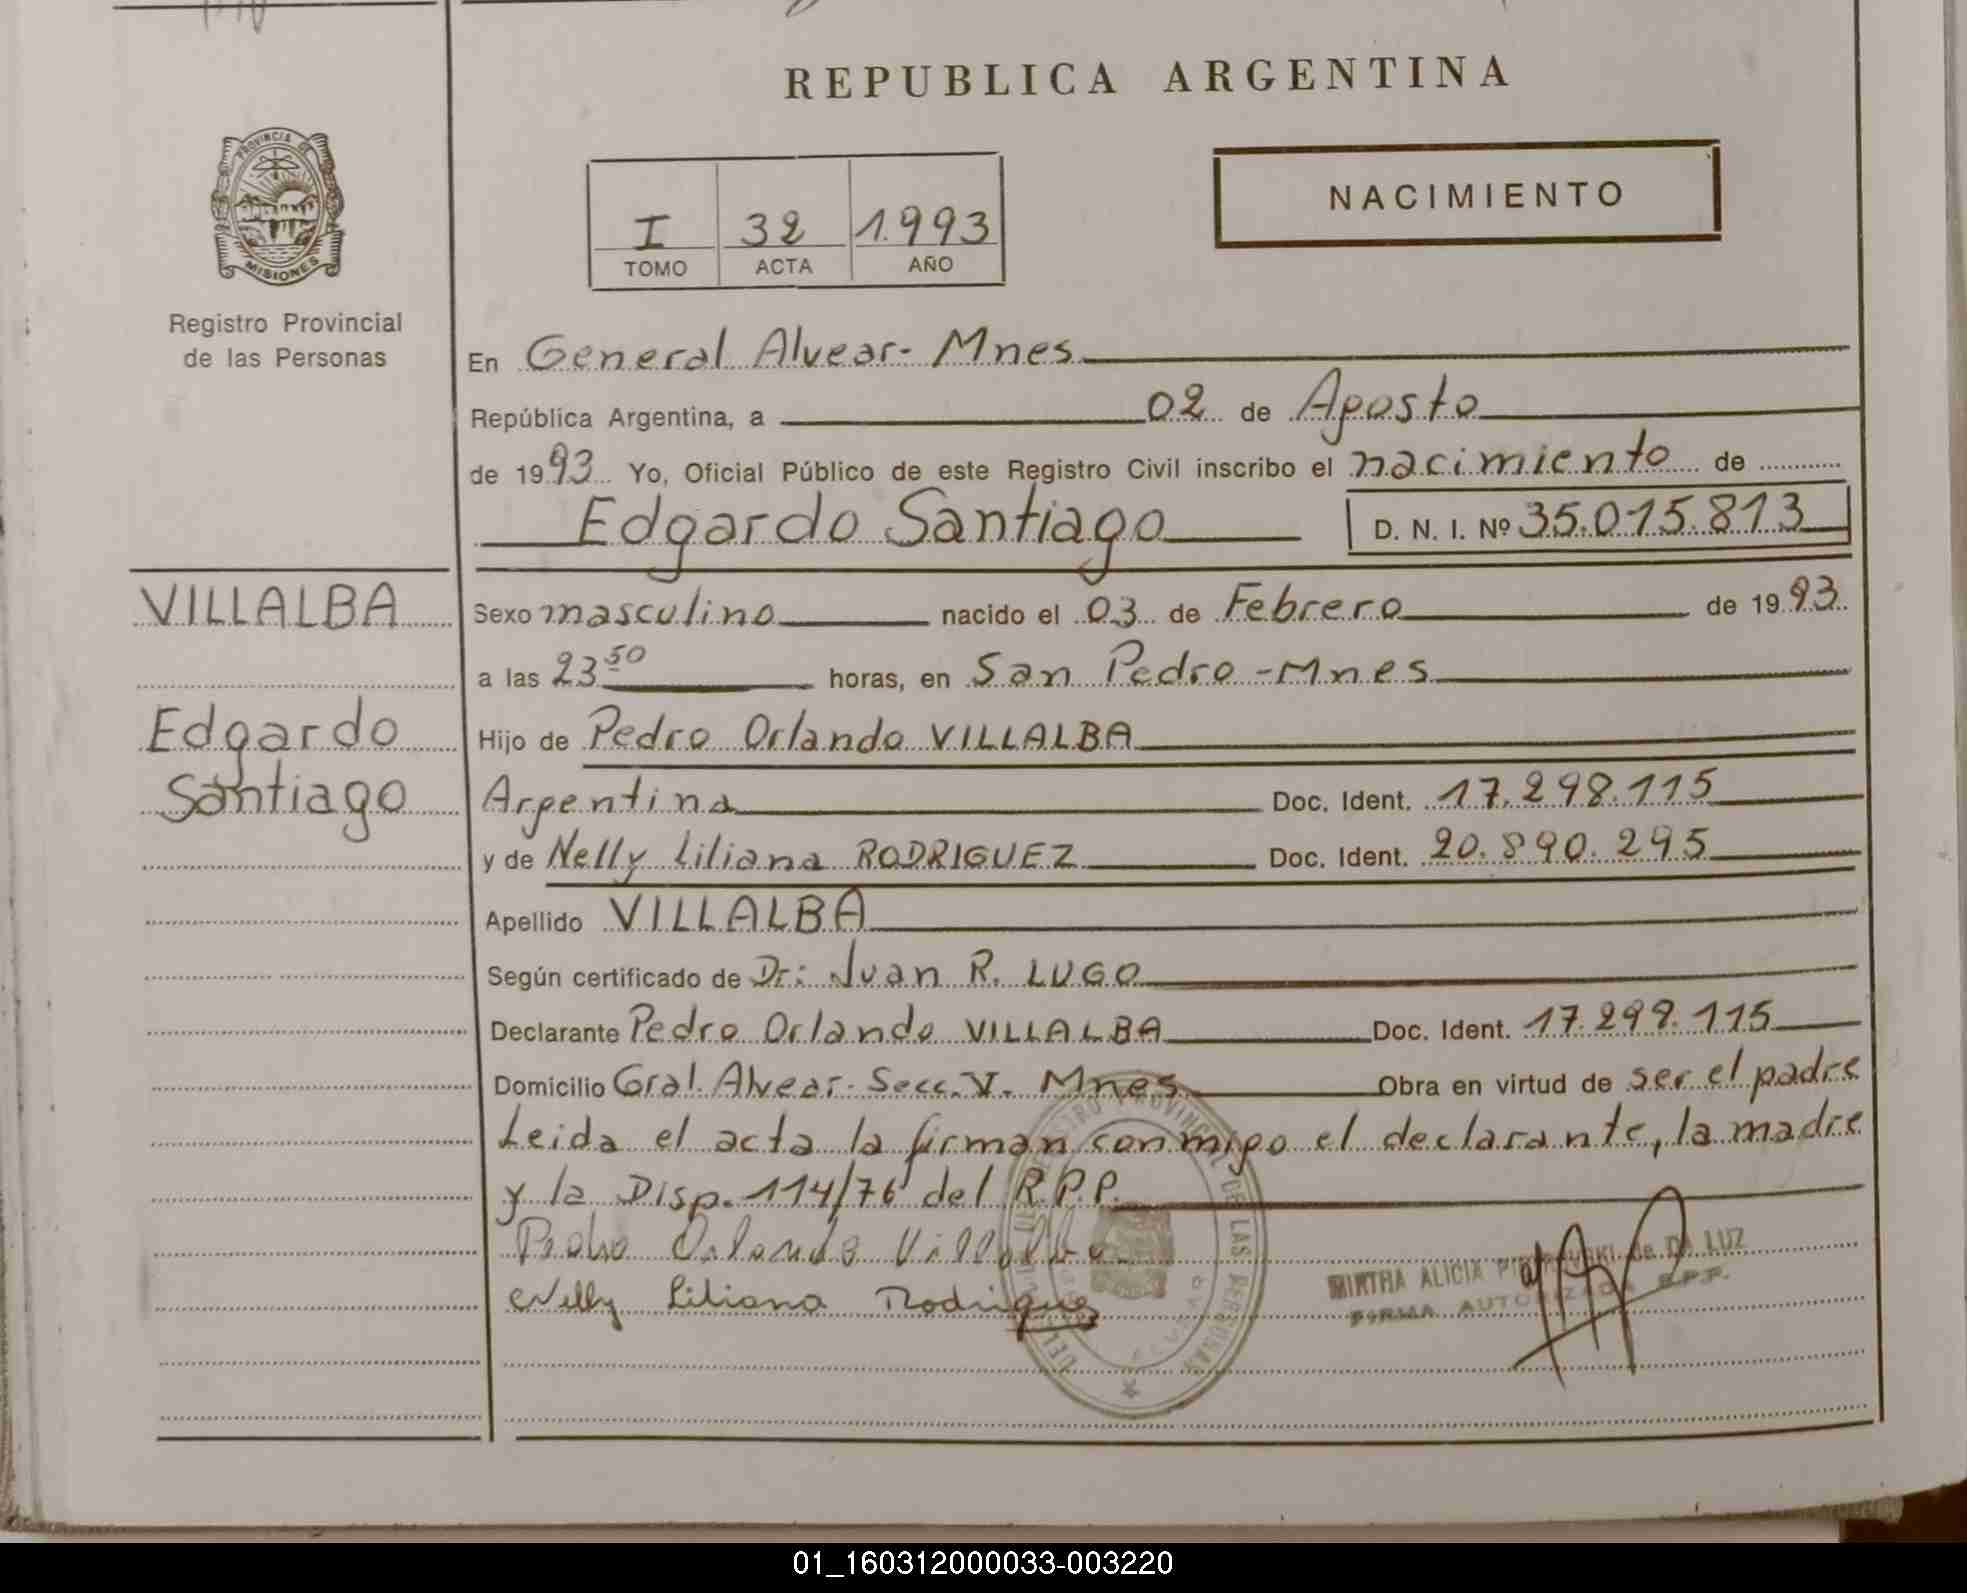 REPUBLICA ARGENTINA
PROVINCIA DE
MISIONES
Registro Provincial
de las Personas
I 32 1.993
TOMO ACTA AÑO
NACIMIENTO
En General Alvear - Mnes
República Argentina, a 02 de Agosto
de 1993 Yo, Oficial Público de este Registro Civil inscribo el nacimiento de
Edgardo Santiago D. N. I. Nº 35.015.813
VILLALBA
Edgardo
Santiago
Sexo masculino nacido el 03 de Febrero de 1993
a las 23 50 horas, en San Pedro - Mnes
Hijo de Pedro Orlando VILLALBA
Argentina Doc. Ident. 17.298.115
y de Nelly Liliana RODRIGUEZ Doc. Ident. 20.890.295
Apellido VILLALBA
Según certificado de Dr: Juan R. LUGO
Declarante Pedro Orlando VILLALBA Doc. Ident. 17.298.115
Domicilio Gral. Alvear - Secc. V. Mnes Obra en virtud de ser el padre
Leida el acta la firman conmigo el declarante, la madre
y la Disp. 114/76 del R.P.P.
Pedro Orlando Villalba
Nelly Liliana Rodriguez
MIRTHA ALICIA DA LUZ
FIRMA AUTORIZADA R.P.P.
REGISTRO PROVINCIAL DE LAS PERSONAS
01_160312000033-003220